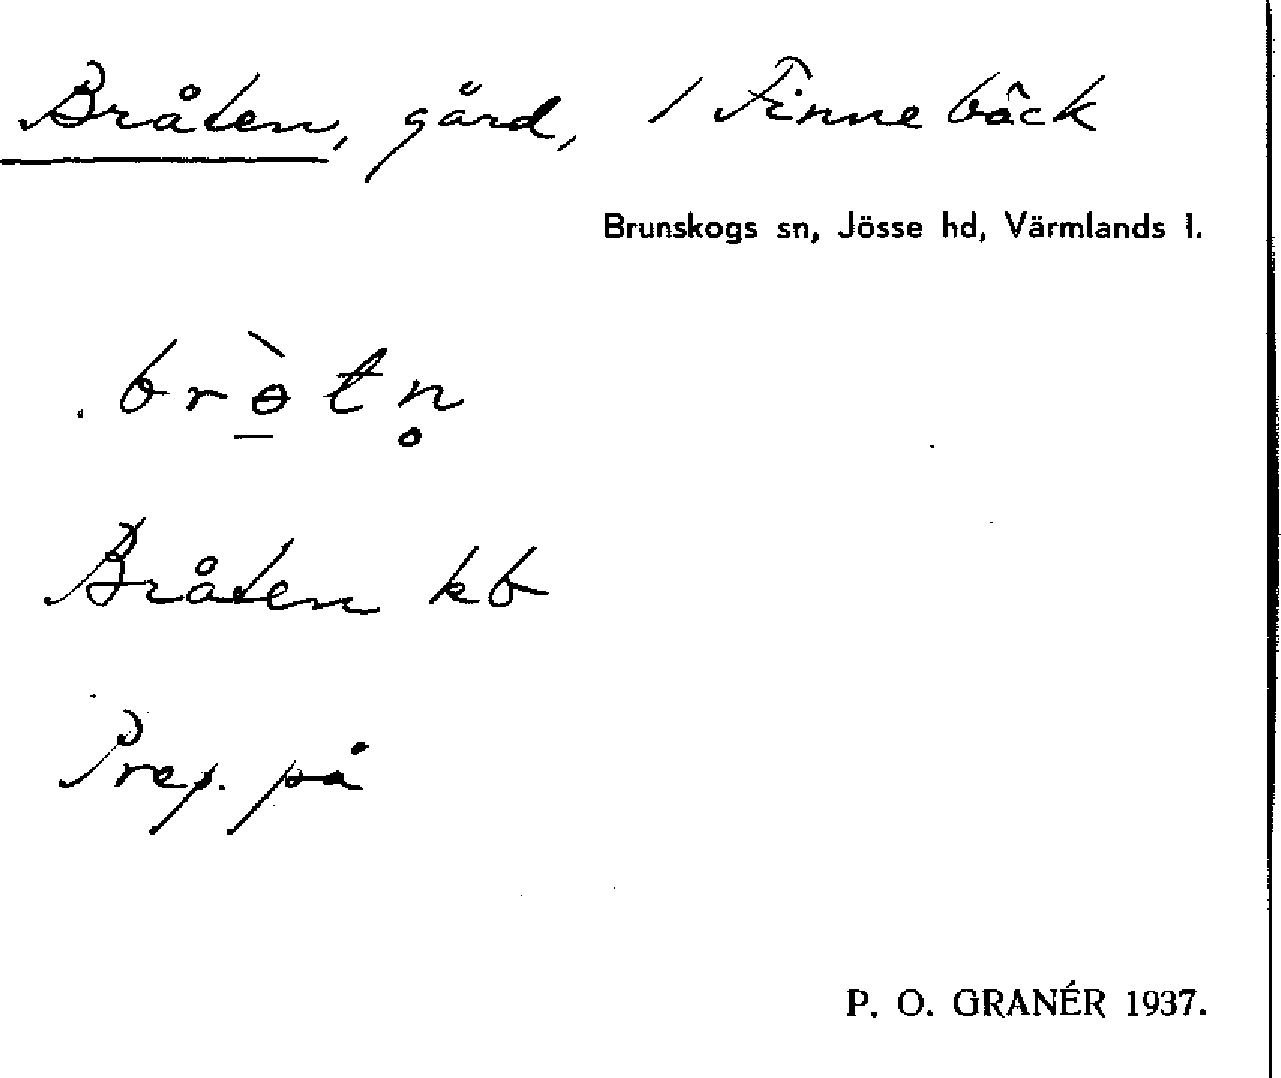 Bråten, gård, / Finnebäck
Brunskogs sn, Jösse hd, Värmlands l.
brɵ̱̀tn̥
Bråten kb
Prep. på
P. O. GRANÉR 1937.